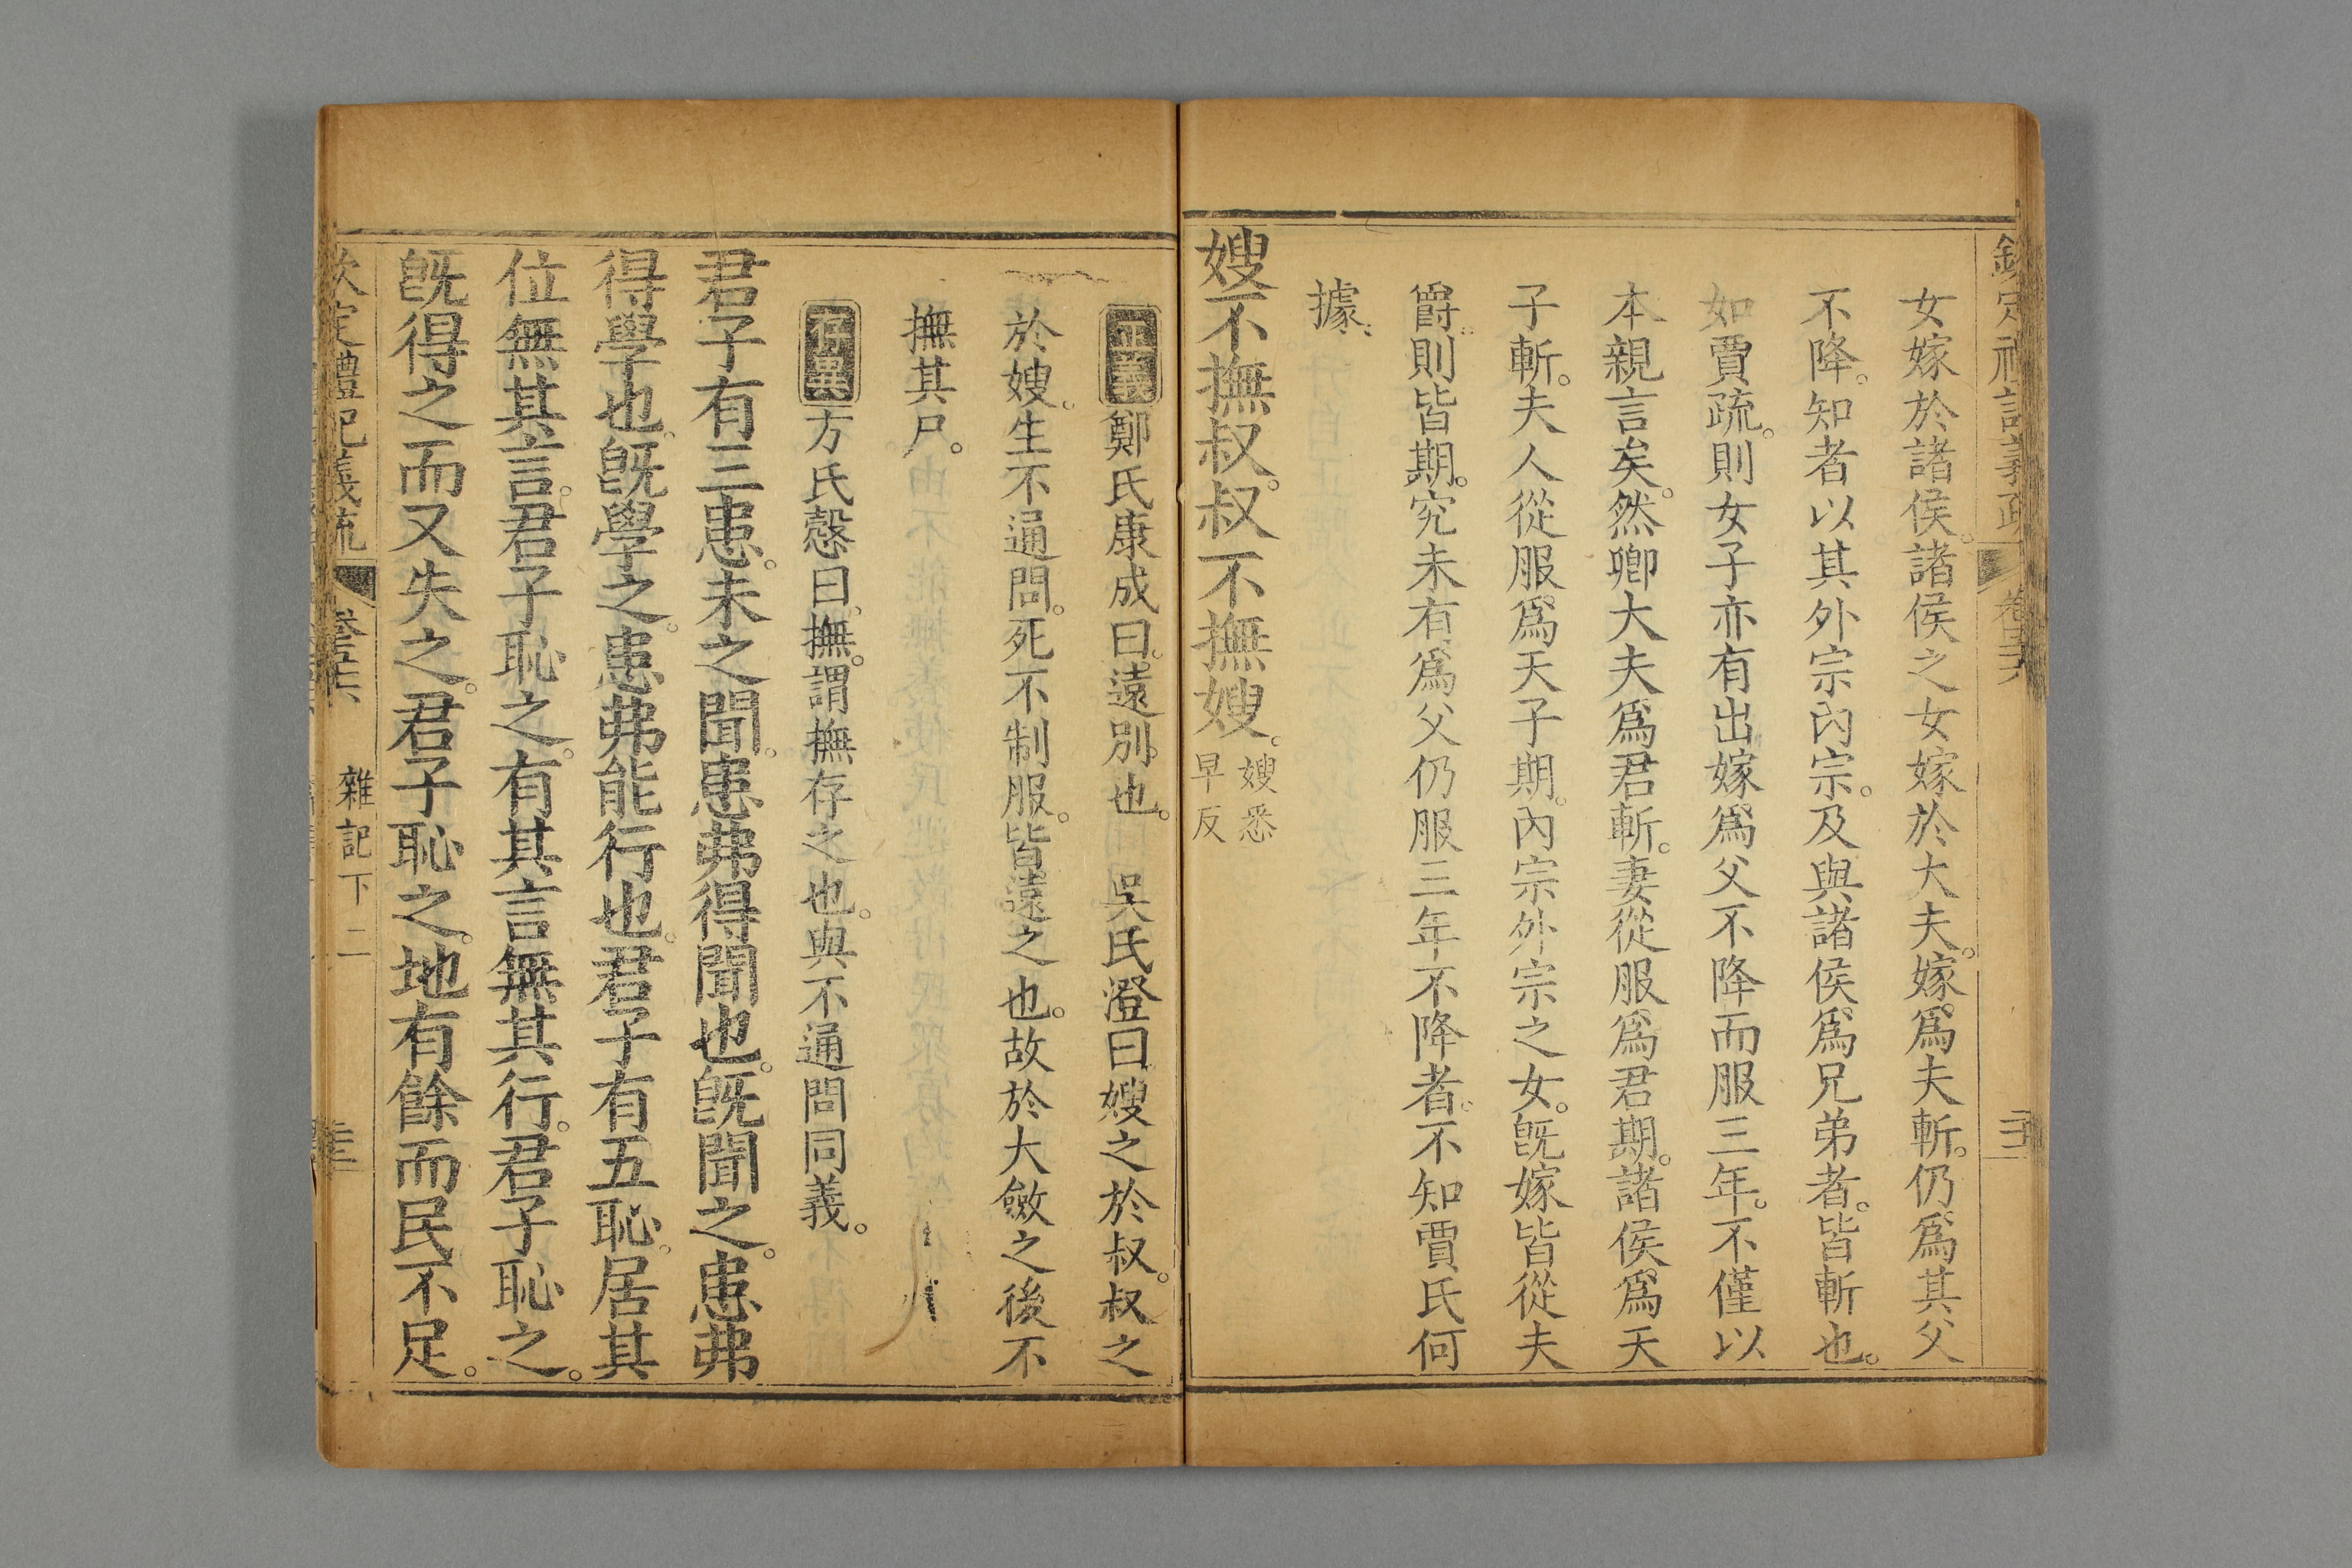 女嫁於諸侯。諸侯之女嫁於大夫。嫁爲夫斬。仍爲其父
不降。知者以其外宗內宗。及與諸侯爲兄弟者。皆斬也。
如賈疏。則女子亦有出嫁爲父不降而服三年。不僅以
本親言矣。然卿大夫爲君斬。妻從服爲君期。諸侯爲天
子斬。夫人從服爲天子期。內宗外宗之女。旣嫁皆從夫
爵。則皆期。究未有爲父仍服三年不降者。不知賈氏何
據
嫂不撫叔。叔不撫嫂。
嫂悉
早反
正義鄭氏康成曰。遠別也。 吳氏澄曰嫂之於叔。叔之
於嫂。生不通問。死不制服。皆遠之也。故於大斂之後不
撫其尸。
存異方氏慤曰。撫。謂撫存之也。與不通問同義。
君子有三患。未之聞。患弗得聞也。旣聞之。患弗
得學也。旣學之。患弗能行也。君子有五恥。居其
位無其言。君子恥之。有其言無其行。君子恥之。
旣得之而又失之。君子恥之。地有餘而民不足。
欽定禮記義疏
雜記下二